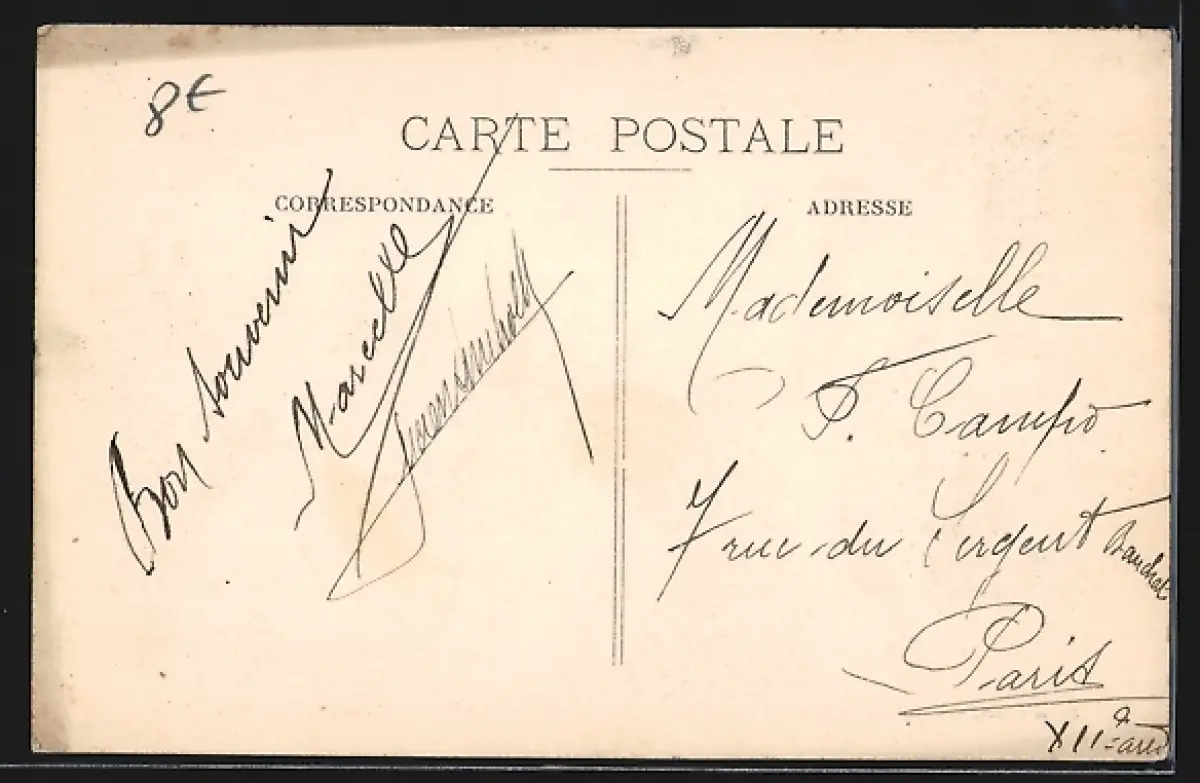 8€
CARTE POSTALE
CORRESPONDANCE
Bon souvenir
Marcelle
ADRESSE
Mademoiselle
F. Campo
7 rue du Sergent Bauchat
Paris
XIIe arrd